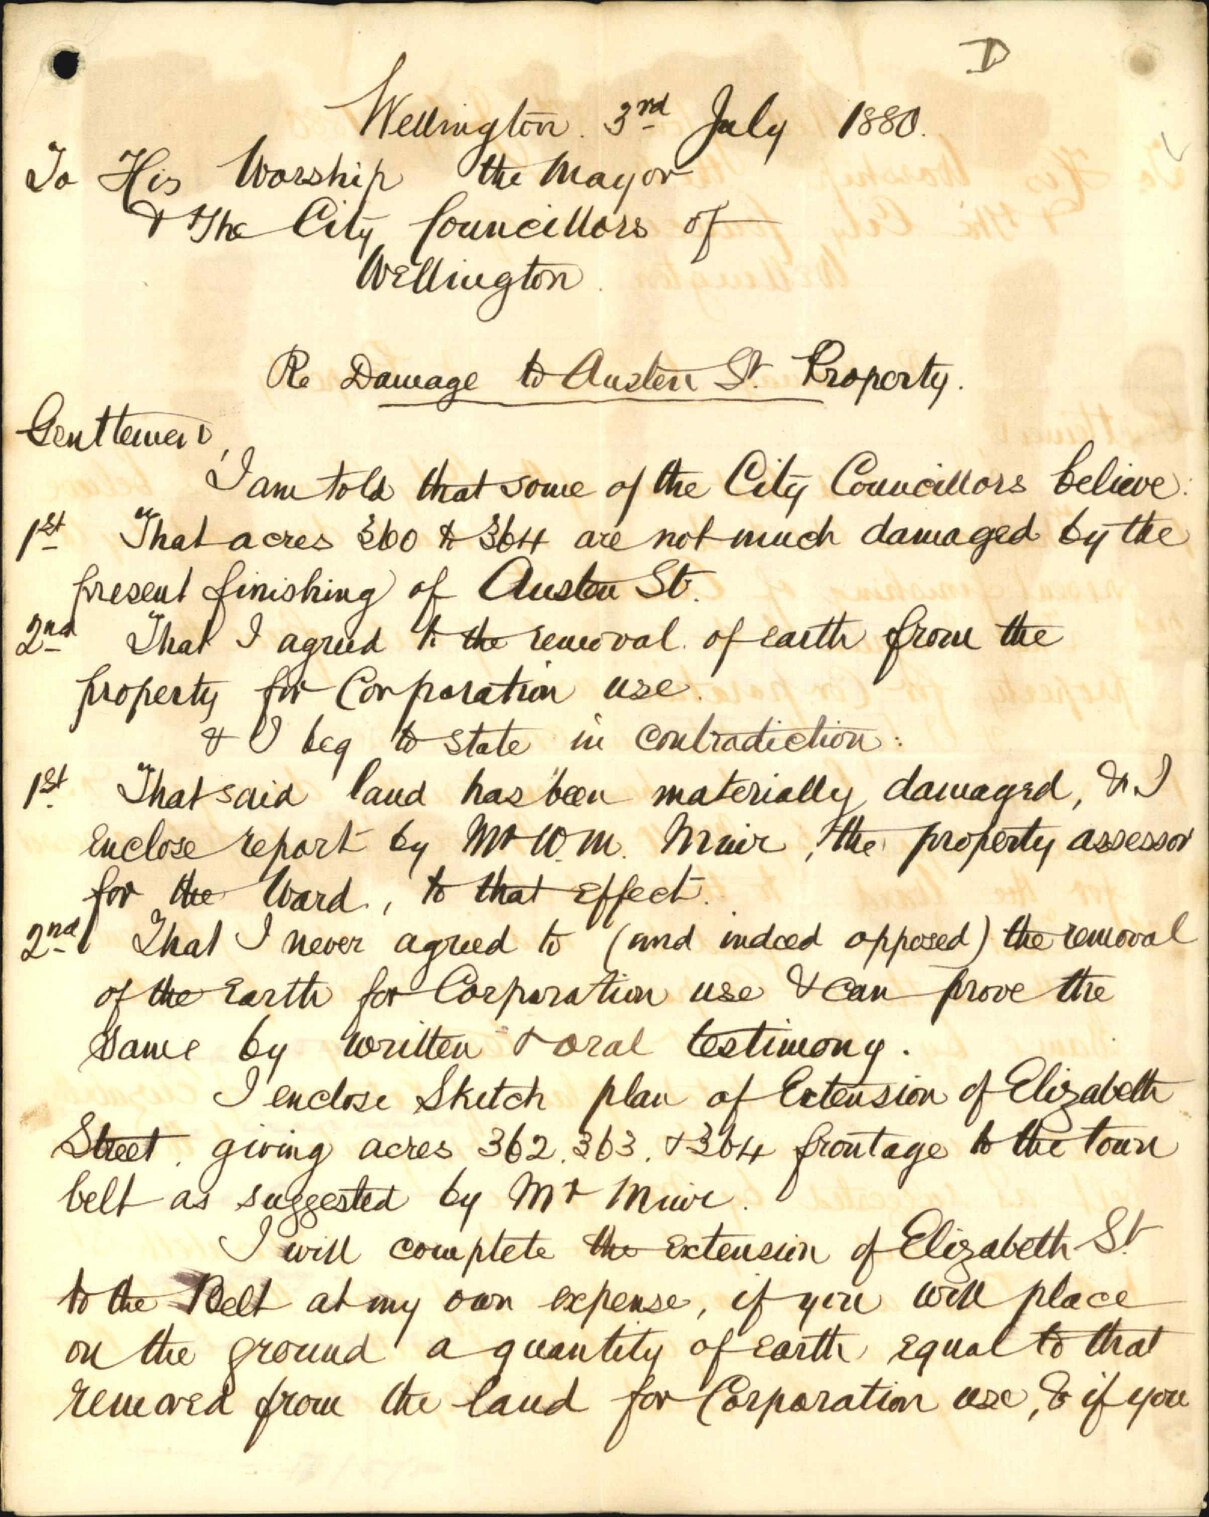 D
Wellington. 3rd July 1880.
To His Worship the Mayor
& The City Councillors of
Wellington.
Re Damage to Austen St. Property.
Gentlemen,
I am told that some of the City Councillors believe:
1st That acres 360 & 364 are not much damaged by the
present finishing of Austen St.
2nd That I agreed to the removal of earth from the
property for Corporation use.
& I beg to state in contradiction:
1st. That said land has been materially damaged, & I
enclose report by Mr W. M. Muir, the property assessor
for the Ward, to that effect.
2nd That I never agreed to (and indeed opposed) the removal
of the Earth for Corporation use & can prove the
same by written & oral testimony.
I enclose Sketch plan of Extension of Elizabeth
Street. giving acres 362. 363. & 364 frontage to the town
belt as suggested by Mr Muir.
I will complete the extension of Elizabeth St
to the Belt at my own expense, if you will place
on the ground a quantity of earth equal to that
removed from the land for Corporation use, & if you